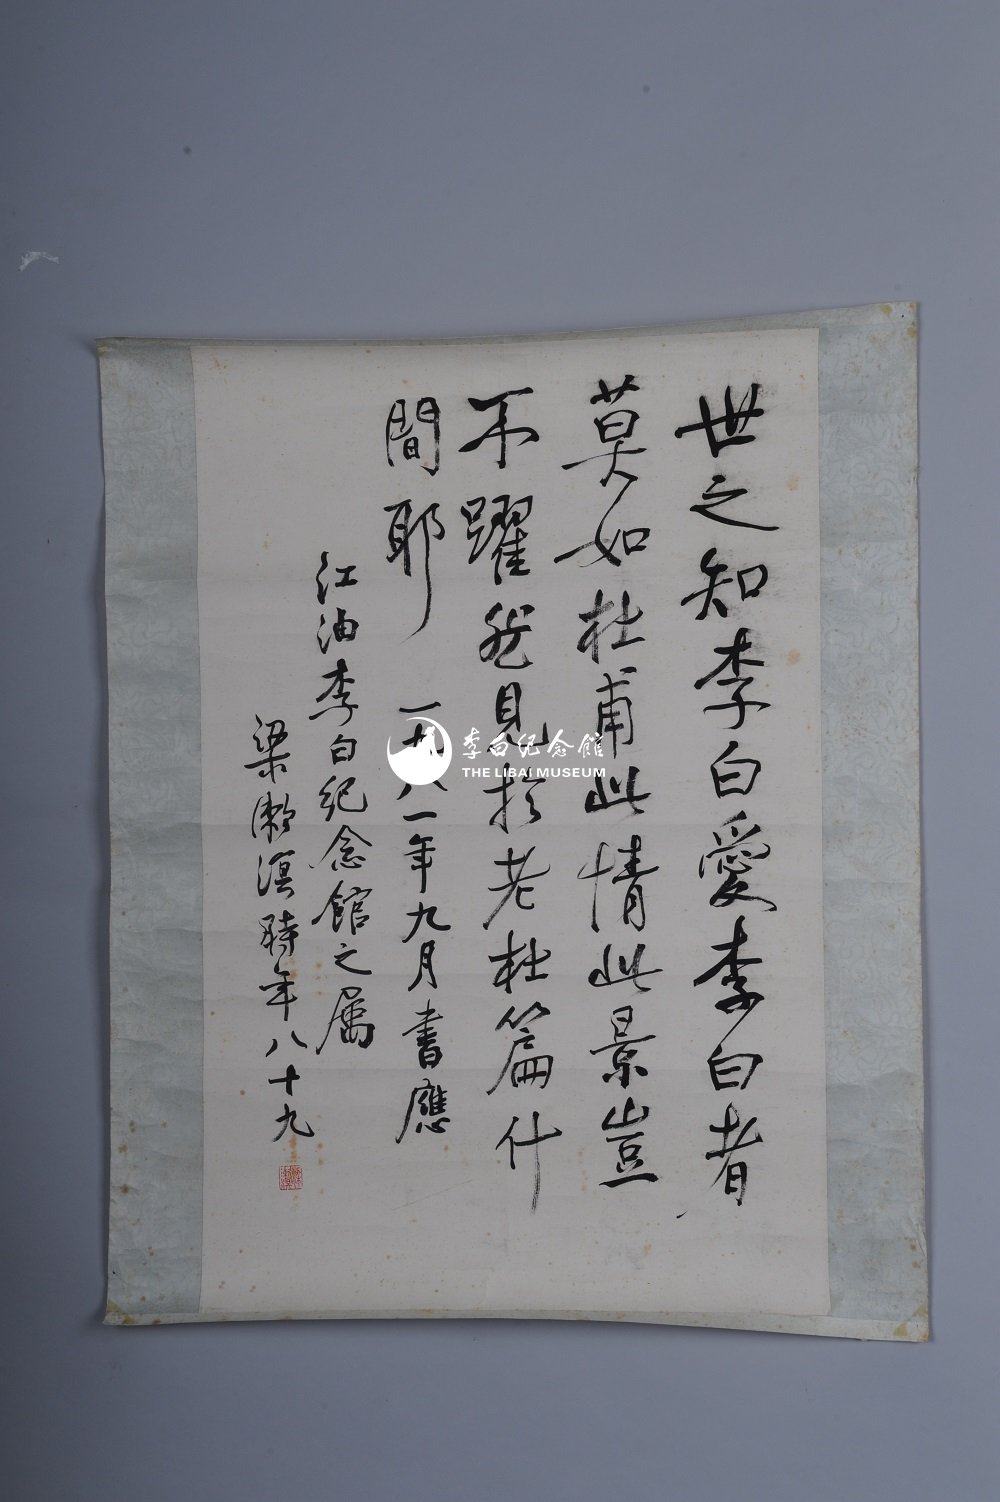 世之知李白愛李白者
莫如杜甫此情此景豈
不躍然見於老杜篇什
間耶 一九八一年九月書應
江油李白紀念館之屬
梁漱溟時年八十九
李白纪念館
THE LIBAI MUSEUM